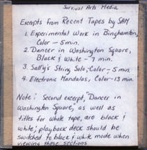 Survival Arts Media
Excerpts from Recent Tapes by SAM
1. Experimental Work in Binghamton,
Color - 5 min.
2. Dancer in Washington Square,
Black & White - 7 min.
3. Sally's String Solo, Color - 5 min.
4. Electronic Mandalas, Color - 13 min.
Note: Second excerpt, "Dancer in
Washington Square, as well as
titles for whole tape, are black &
white; playback deck should be
switched to black & white mode when
viewing these sections